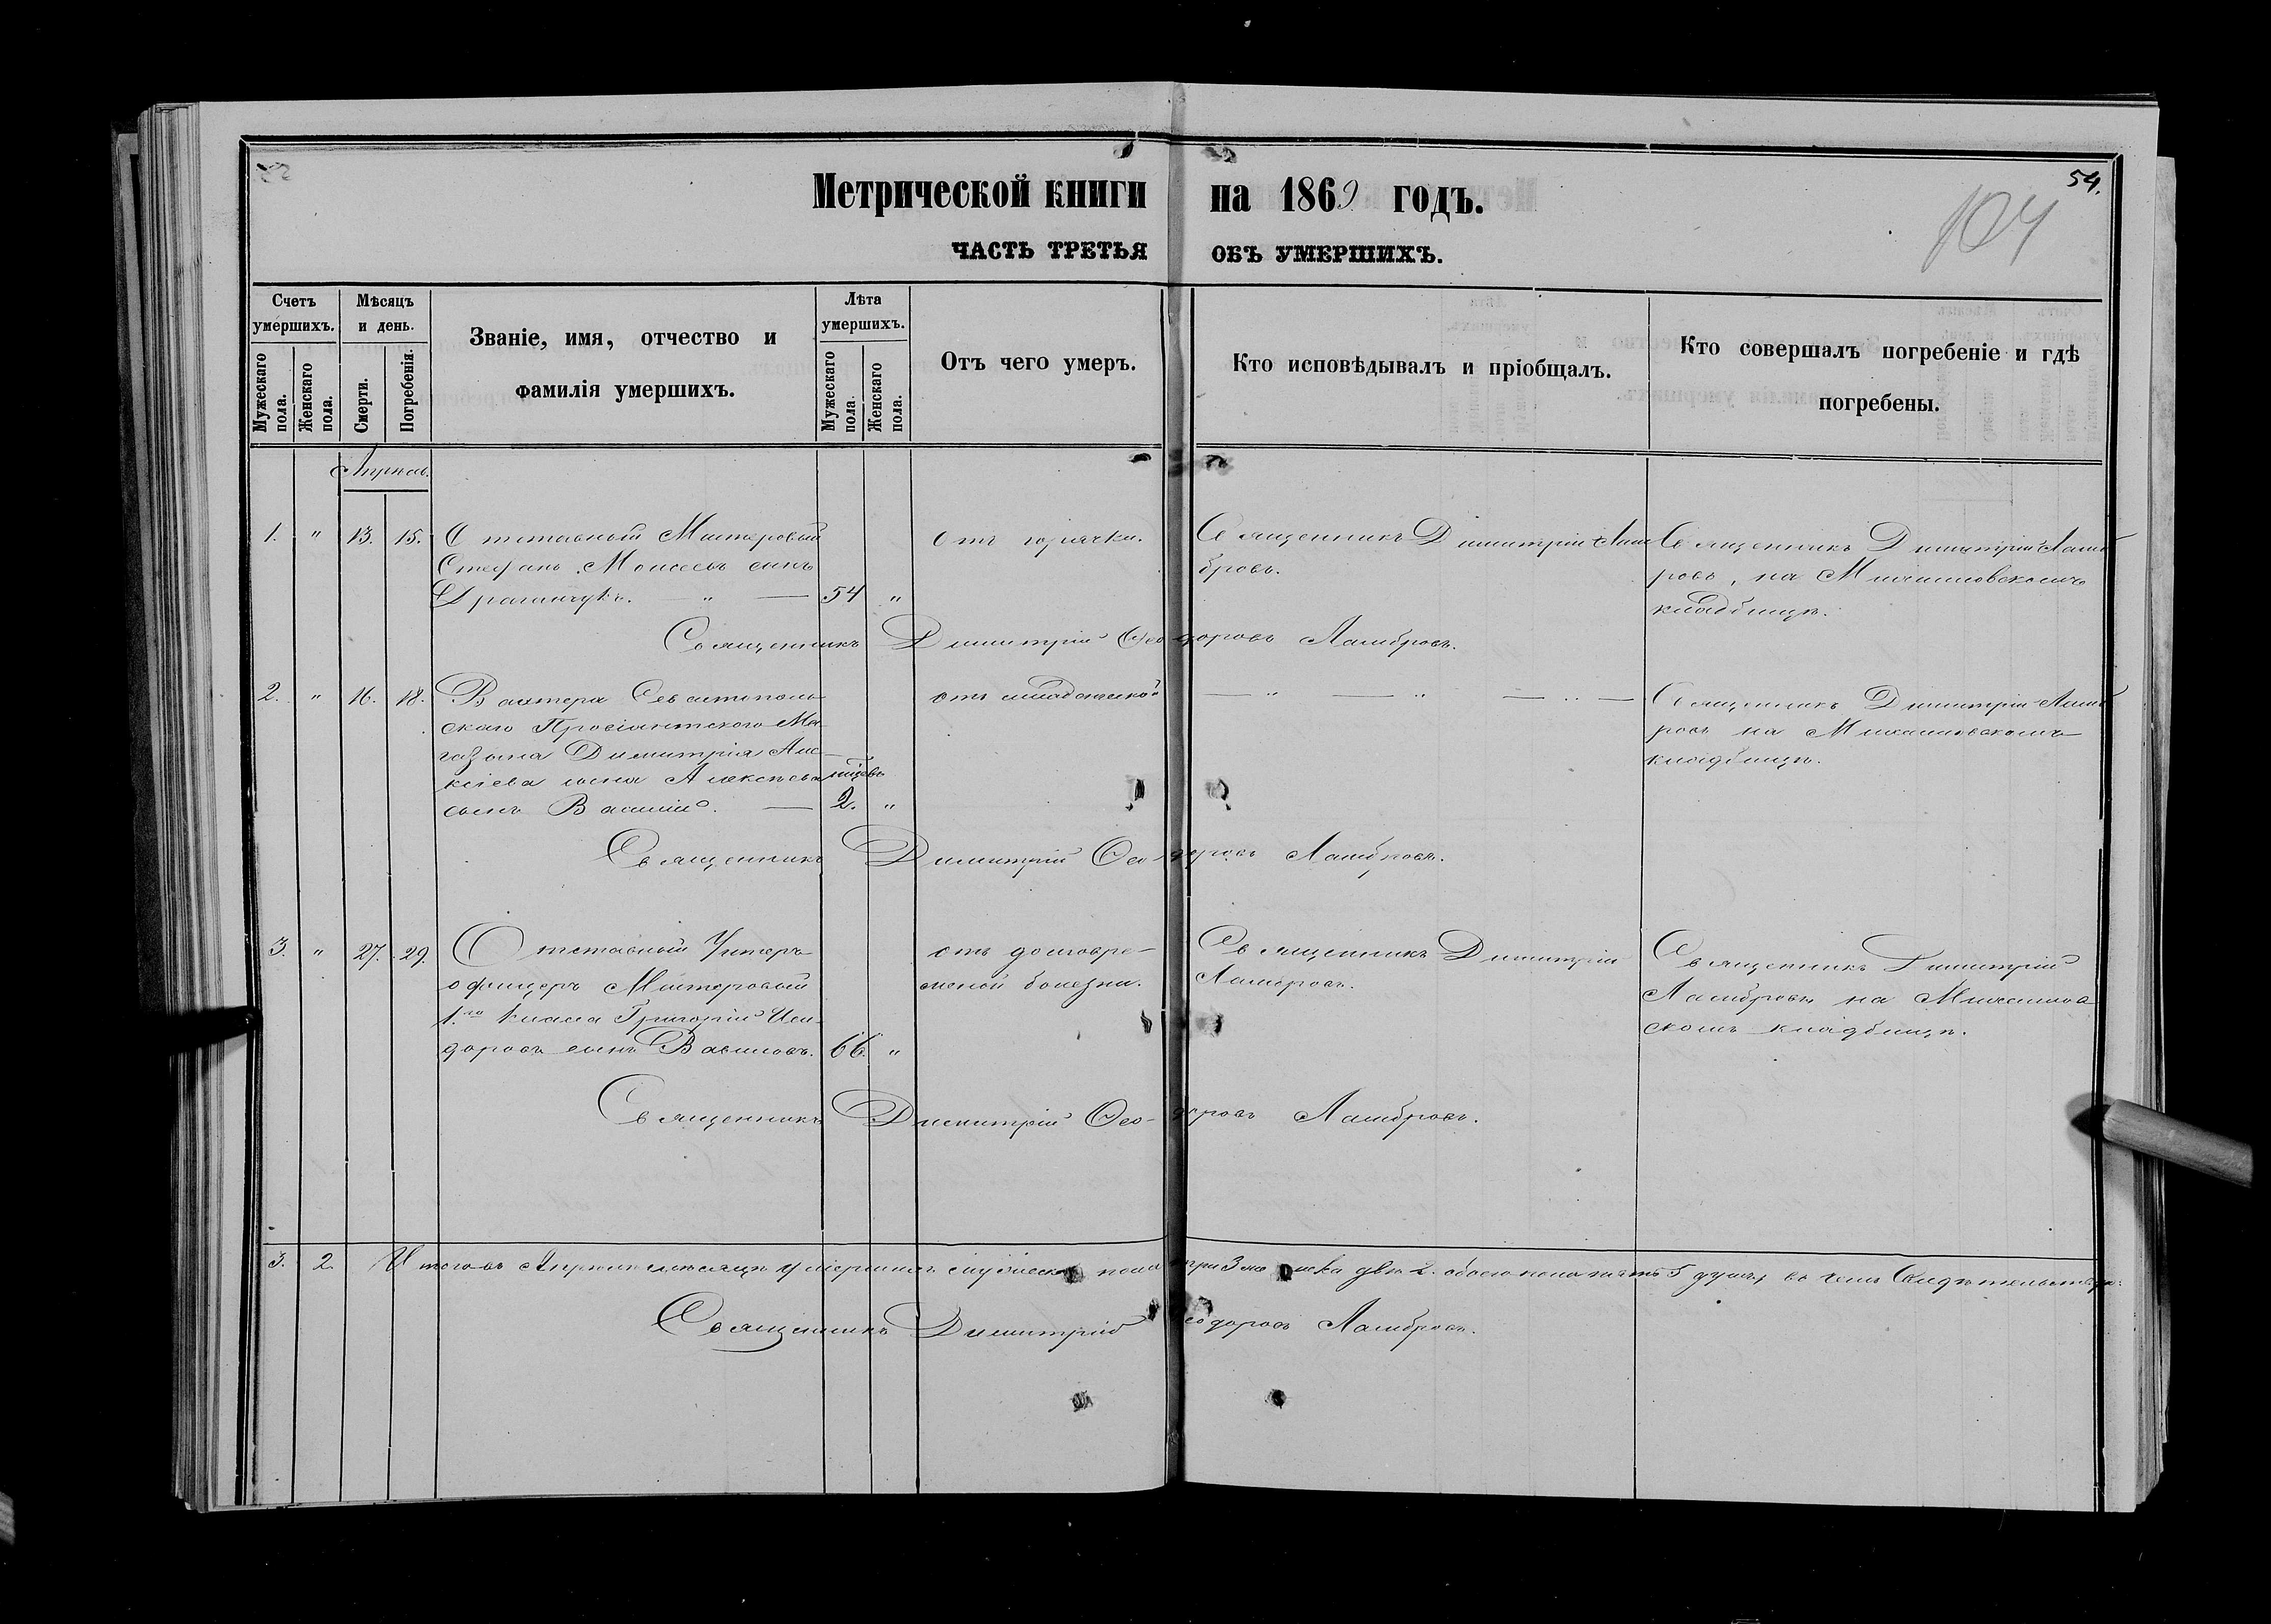 54.
104
Метрической книги на 1869 годъ.
ЧАСТЬ ТРЕТЬЯ ОБЪ УМЕРШИХЪ.
Счетъ умершихъ.
Мужескаго пола.
Женскаго пола.
Мѣсяцъ и день.
Смерти.
Погребенія.
Званіе, имя, отчество и фамилія умершихъ.
Лѣта умершихъ.
Мужескаго пола.
Женскаго пола.
Отъ чего умеръ.
Кто исповѣдывалъ и пріобщалъ.
Кто совершалъ погребеніе и гдѣ погребены.
Апрѣль.
1. " 13. 15. Отставный Мастеровый
Стефанъ Моисеевъ сынъ
— " — 54 "
отъ горячки.
Священникъ Димитрій Лам
бровъ.
Священникъ Димитрій Ламб
ровъ, на Михайловскомъ
кладбищѣ.
Священникъ Димитрій Ѳеодоровъ Ламбровъ.
2. " 16. 18. Вахтера Севастополь
скаго Провіантскаго Ма
газина Димитрія Але
ксіева сына Алексѣева
сынъ Василій. — 2. "
отъ младенческой
— " — " — " —
Священникъ Димитрій Ламб
ровъ на Михайловскомъ
кладбищѣ.
Священникъ Димитрій Ѳеодоровъ Ламбровъ.
3. " 27. 29. Отставный Унтеръ
офицеръ Мастеровый
1.го класса Григорій Иси
доровъ сынъ Вавиловъ. 66. "
отъ долговре-
меной болезни.
Священникъ Димитрій
Ламбровъ.
Священникъ Димитрій
Ламбровъ на Михайлов
скомъ кладбищѣ.
Священникъ Димитрій Ѳео-доровъ Ламбровъ.
3. 2. Итого въ Апрѣлѣ мѣсяцѣ умершихъ мужеска пола три 3 женска двѣ 2. обоего пола пять 5 душъ, въ чемъ
Священникъ Димитрій Ѳеодоровъ Ламбровъ.